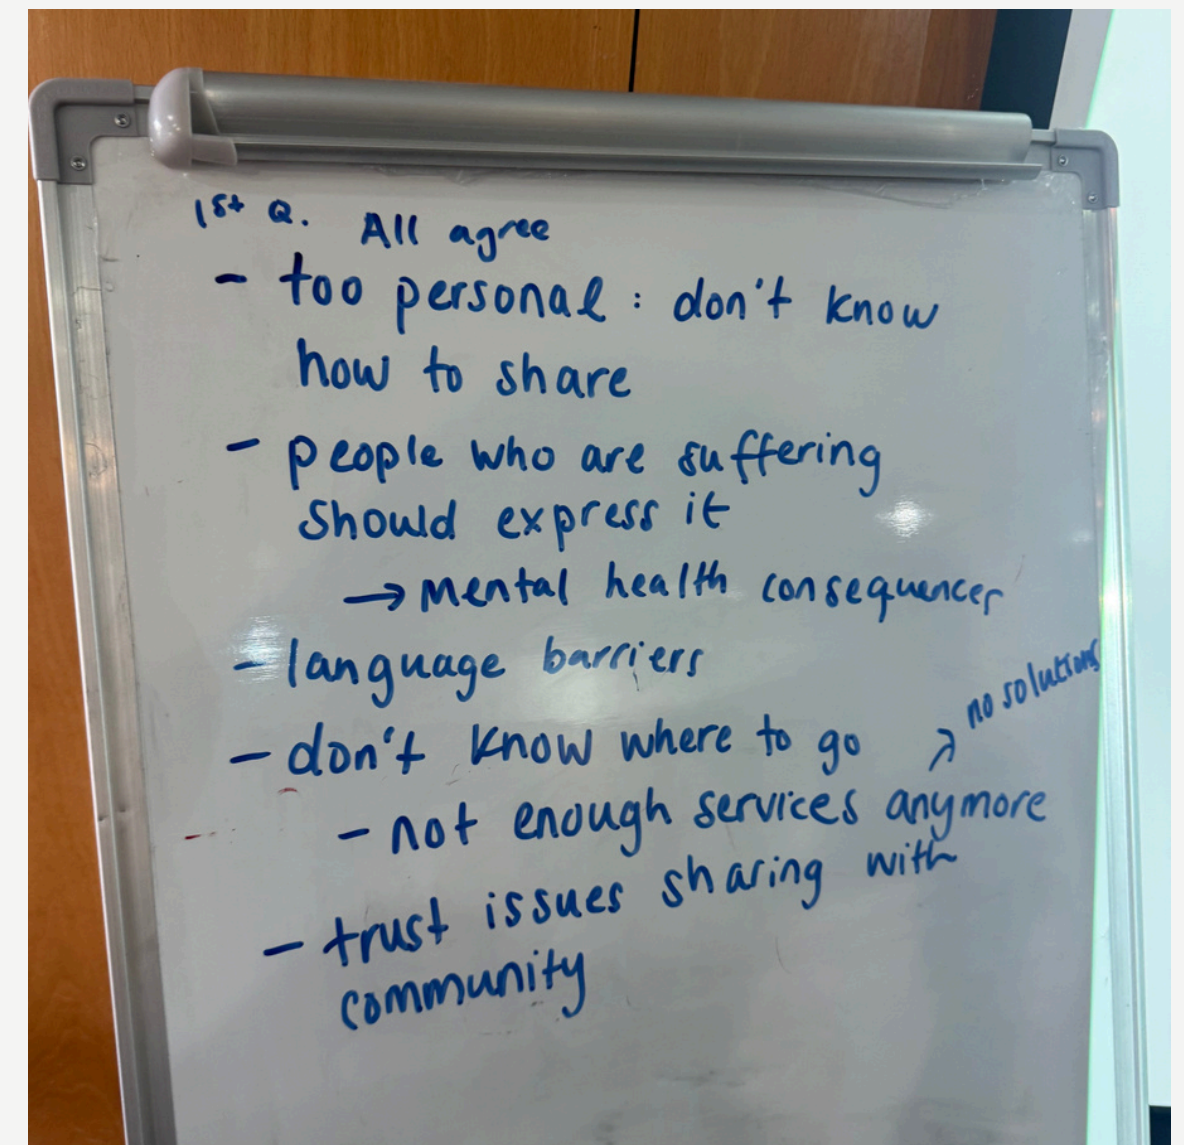 1st Q. All agree
- too personal : don't know
how to share
- people who are suffering
should express it
→ mental health consequences
- language barriers
- don't know where to go
- not enough services anymore
↗ no solutions
- trust issues sharing with
community